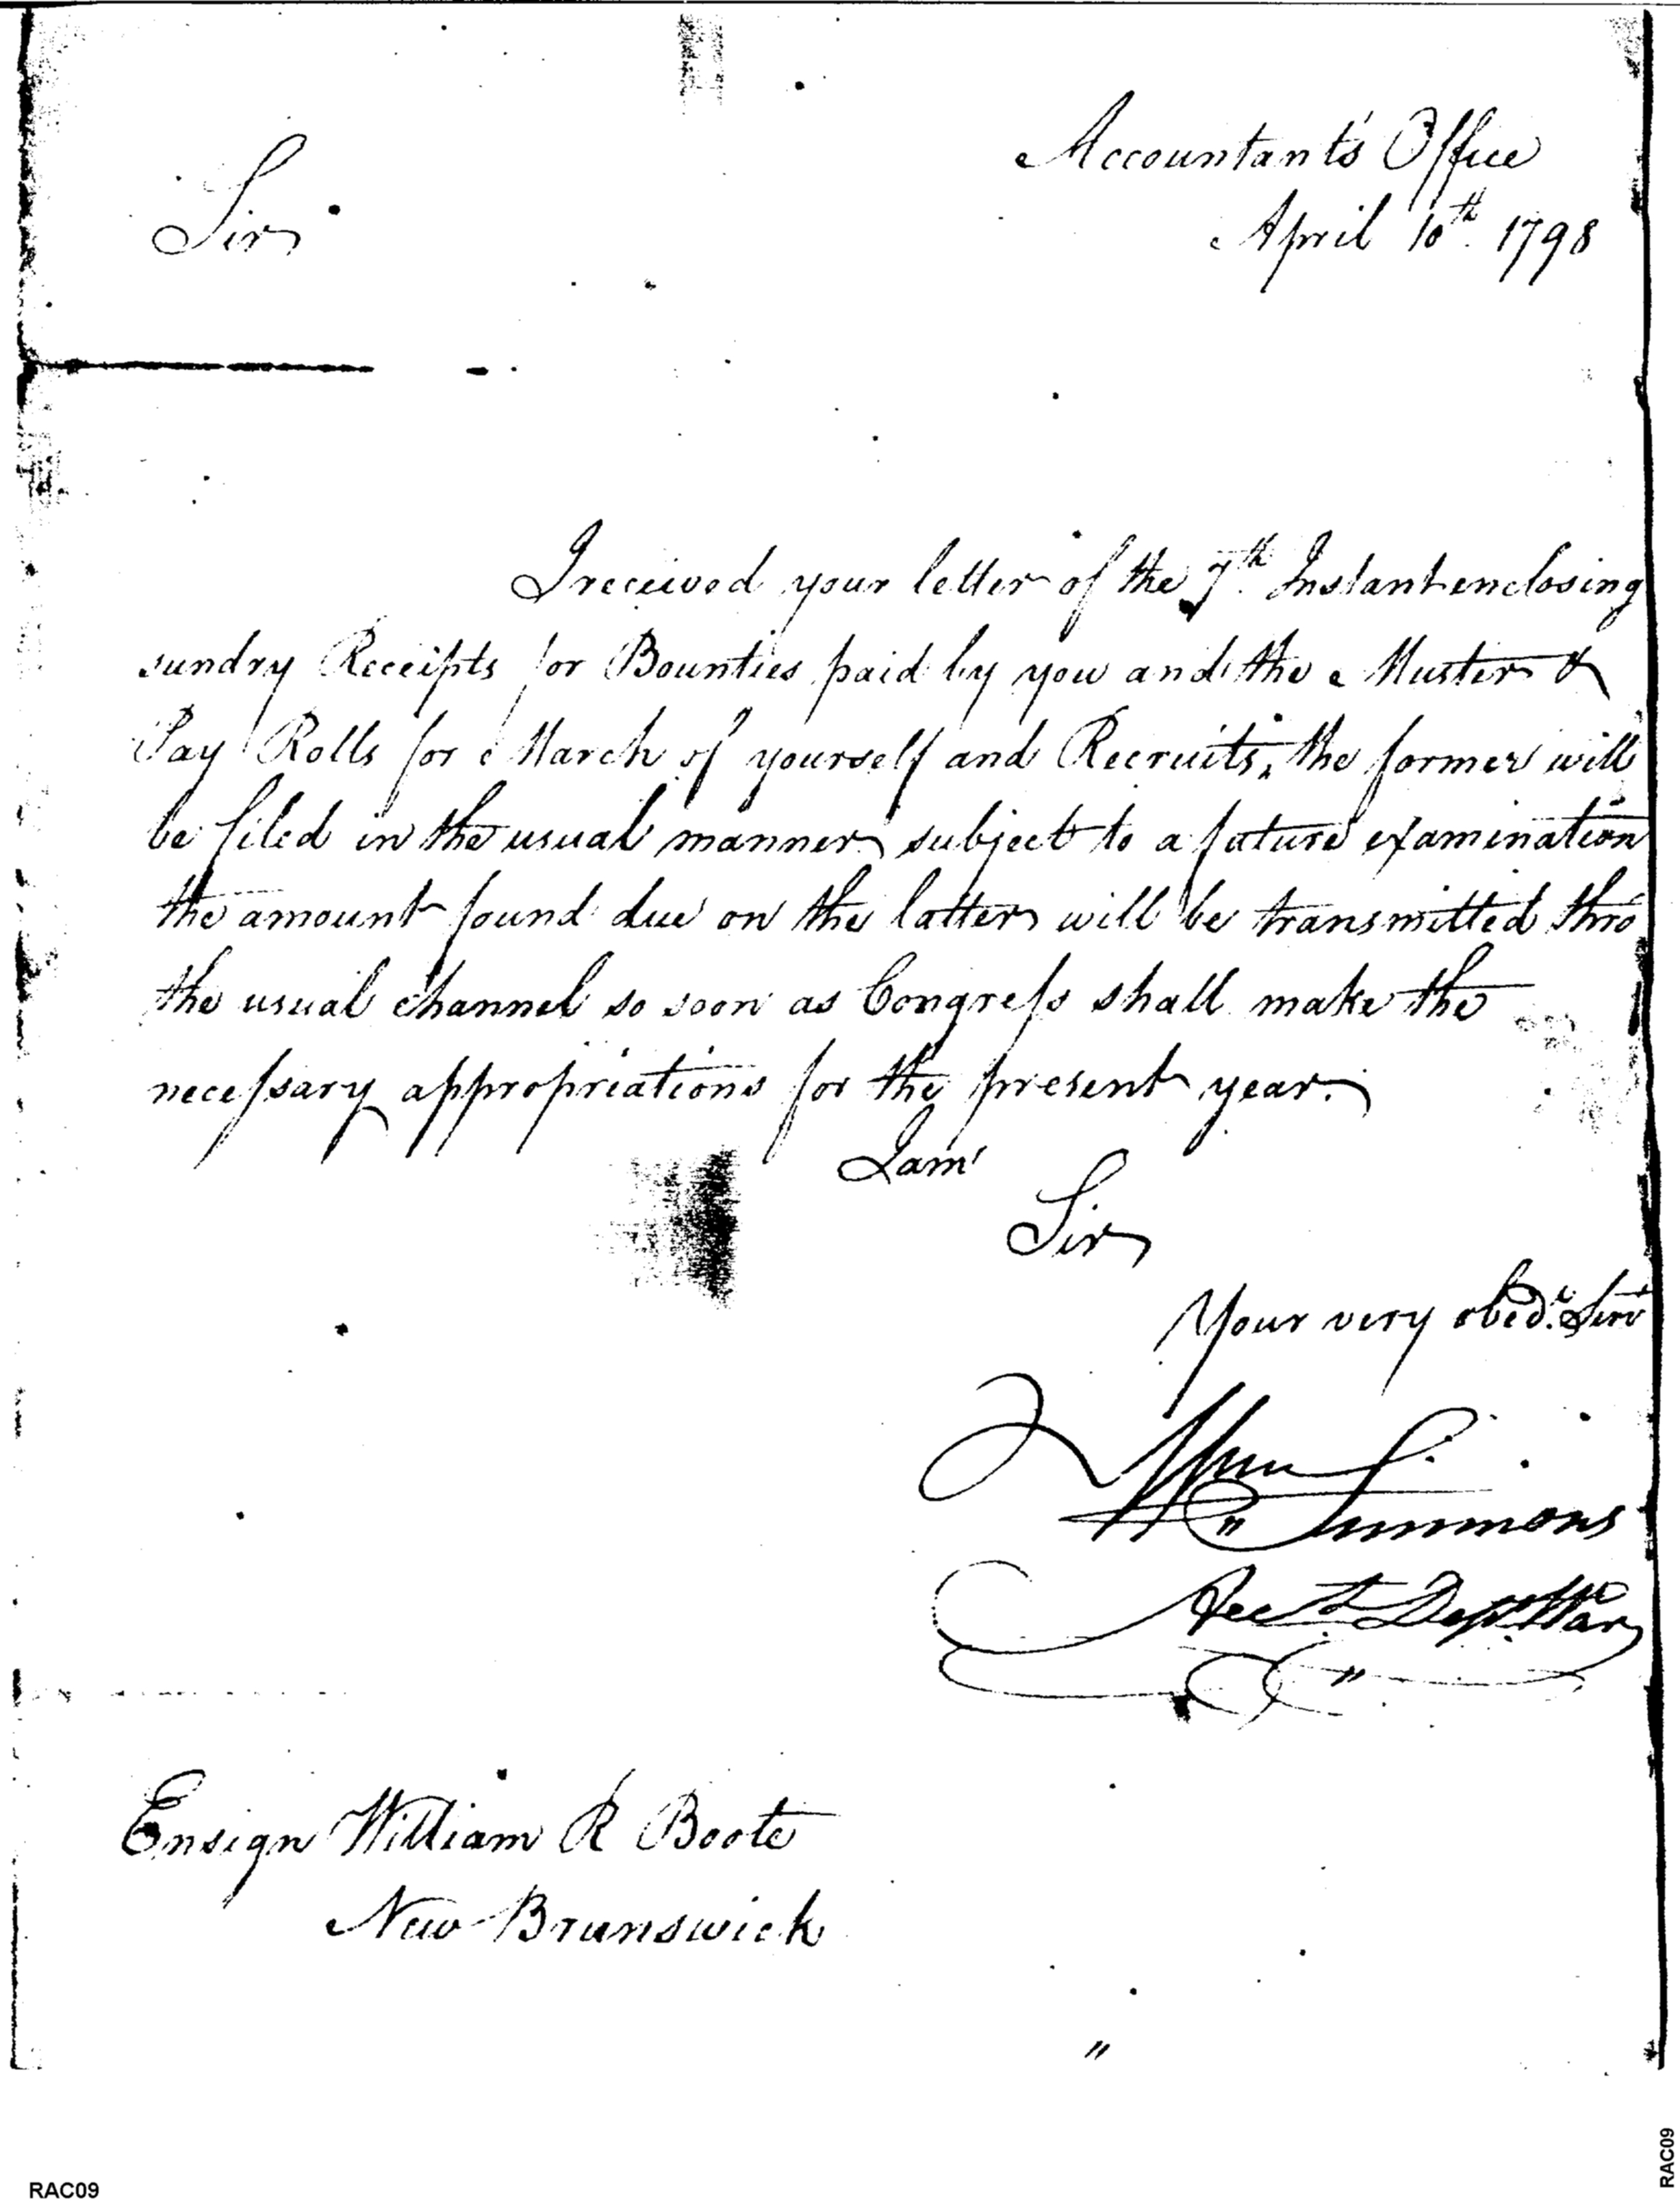 Accountant's Office
April 10th. 1798
Sir
I received your letter of the 7th. Instant enclosing
sundry Receipts for Bounties paid by you and the Muster &
Pay Rolls for March of yourself and Recruits, the former will
be filed in the usual manner subject to a future examination
the amount found due on the latter will be transmitted thro
the usual channel so soon as Congress shall make the
necessary appropriations for the present year.
I am
Sir
Your very obedt. Servt
Wm Simmons
Acct Dept War
Ensign William R Boote
New Brunswick
RAC09
RAC09